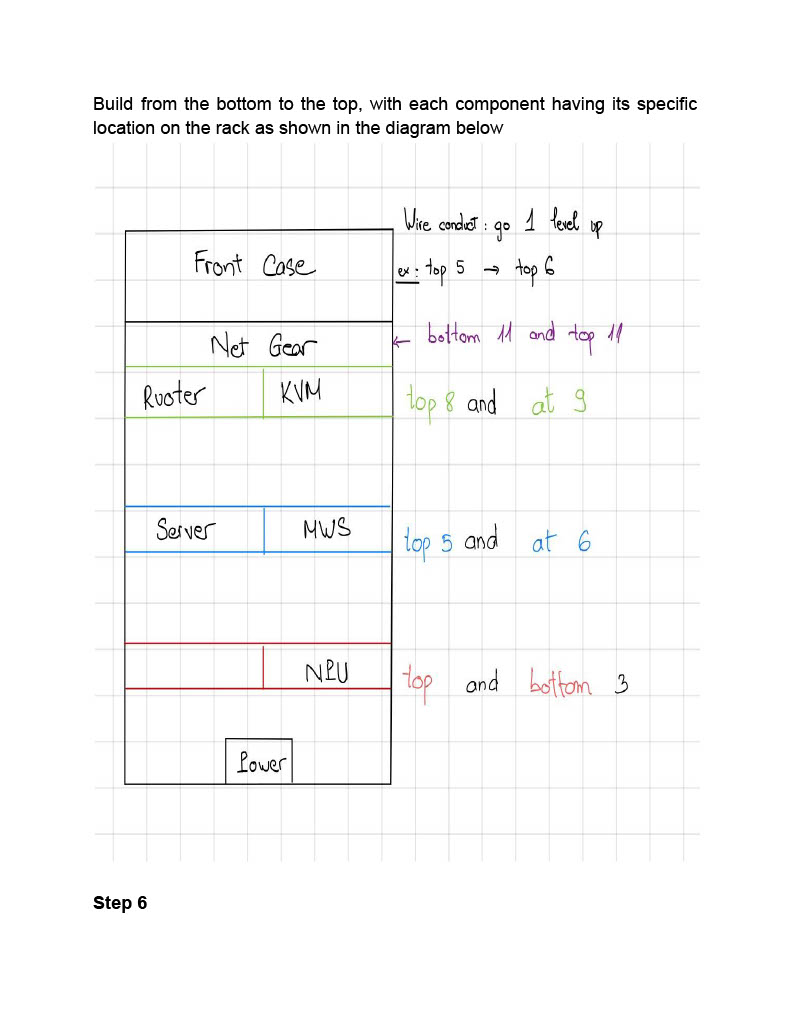 Build from the bottom to the top, with each component having its specific
location on the rack as shown in the diagram below
Wire conduct : go 1 level up
Front Case
ex : top 5 → top 6
Net Gear
← bottom 11 and top 11
Ruoter
KVM
top 8 and at 9
Server
MWS
top 5 and at 6
NPU
top and bottom 3
Power
Step 6